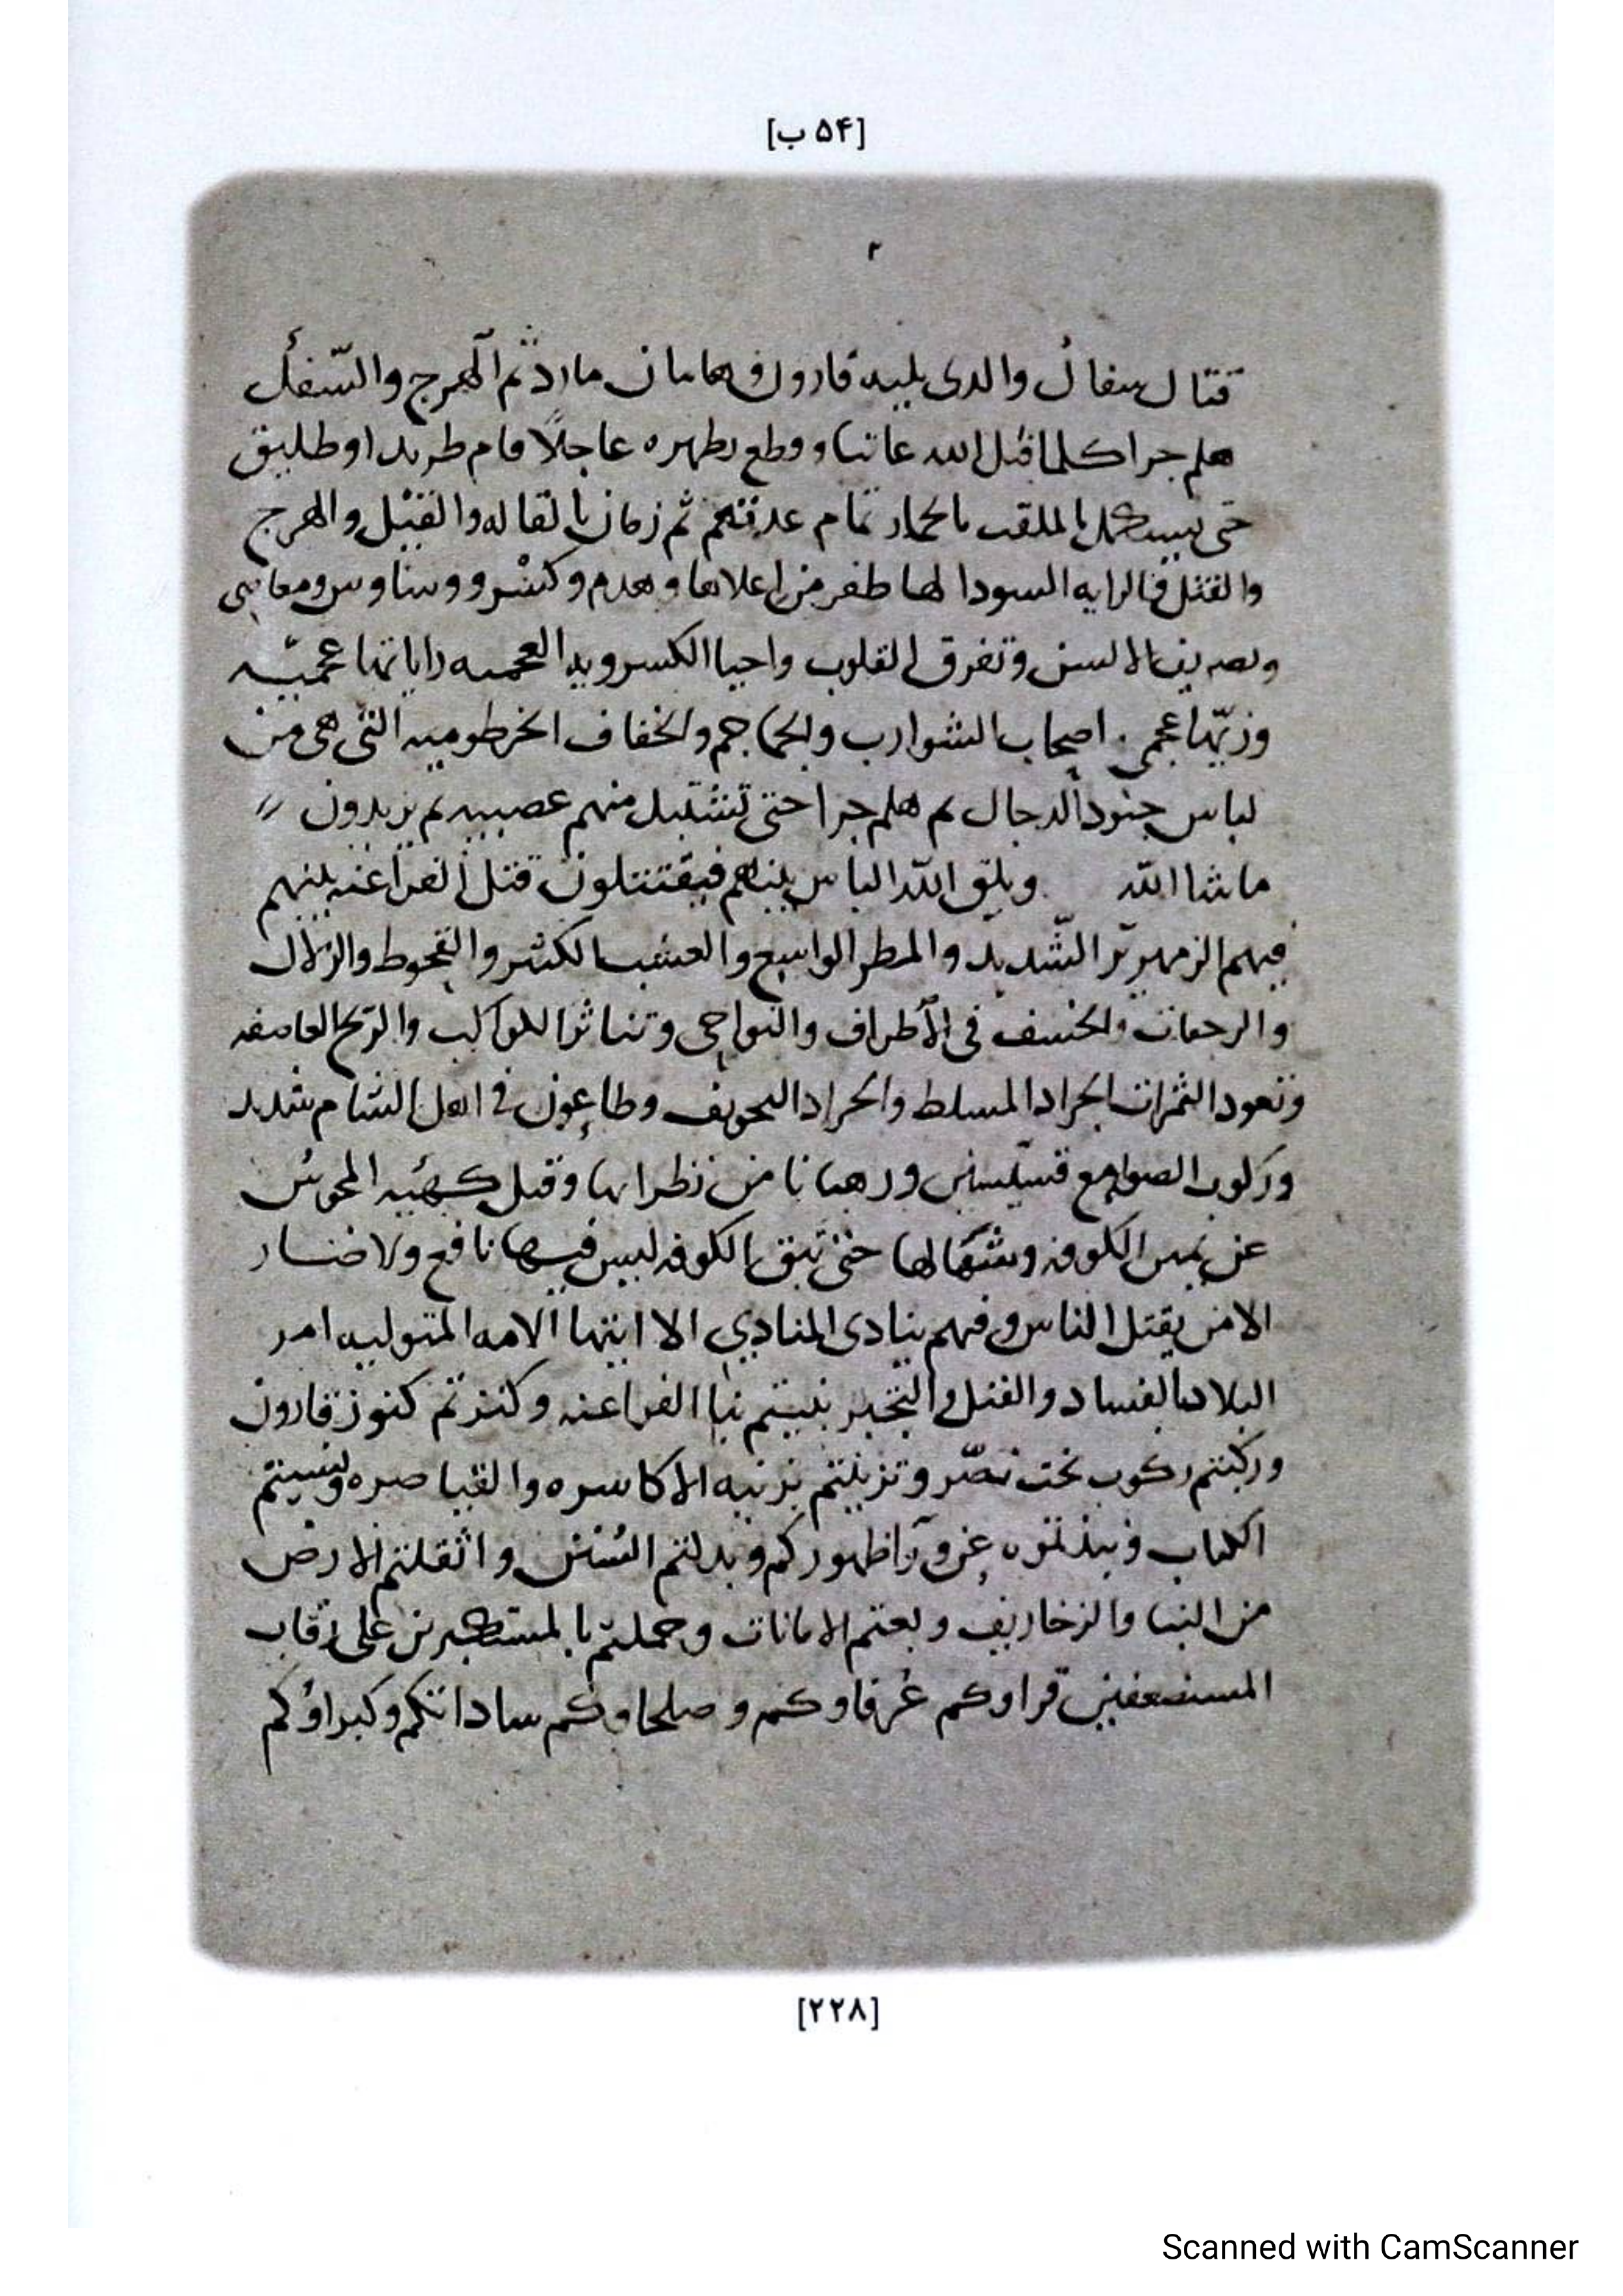 [۵۴ ب]
۲
قتال سفال والدى يليه قارون هامان مارد ثم الهرج والسفل
هلم جرا كلما قبل الله عاتيا وقطع بظهره عاجلا قام طريدا وطليق
حتى يستكمل الملقب بالحمار تمام عدتهم ثم زمان والقتل والهرج
والقتل فالرايه السودا لها ظفر من اعلاها وهدم وكسر
الالسن وتفرق القلوب واحيا الكسرويه العجميه راياتها عجميه
وزيها عجمى اصحاب الشوارب والجماجم والخفاف الخرطوميه التى هى من
لباس جنود الدجال ثم هلم جرا حتى منهم عصبيه ثم يزيدون
ماشا الله ويلقى الله الباس بينهم فيقتتلون قتل الفراعنه بينهم
فيهم الزمهرير الشديد والمطر الواسع والعشب الكثير والقحوط والزلازل
والرجفات والخسف فى الأطراف والنواحى وتناثر الكواكب والريح العاصفه
وتعود الثمرات الجراد المسلط والجراد وطاعون فى اهل الشام شديد
وركوب الصوامع قسيسين ورهبانا من وقتل كهئيه المجوس
عن يمين الكوفه وشمالها حتى تبق الكوفه ليس فيها نافع ولا ضار
الا من يقتل الناس وفيهم ينادى المنادي الا ايتها الامه المتوليه امر
البلاد بالفساد والقتل والتجبر بنيتم بنا الفراعنه وكنزتم كنوز قارون
وركبتم ركوب بخت نصر وتزينتم بزينه الاكاسره والقياصره ونسيتم
الكتاب ونبذتموه ظهوركم وبدلتم السنن واثقلتم الارض
من البنا والزخاريف وبعتم الامانات وحملتم بالمستكبرين على رقاب
المستضعفين قراوكم عرفاوكم وصلحاوكم ساداتكم وكبراؤكم
[۲۲۸]
Scanned with CamScanner